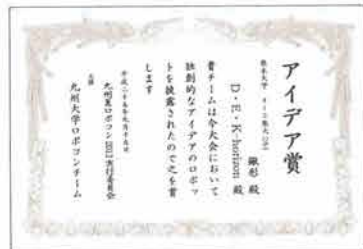 アイデア賞
D・E・K-horizon 殿
貴チームは今大会において
独創的なアイデアのロボッ
トを披露されたので之を賞
します
平成二十五年九月十五日
九州夏ロボコン2013実行委員会
主催
九州大学ロボコンチーム